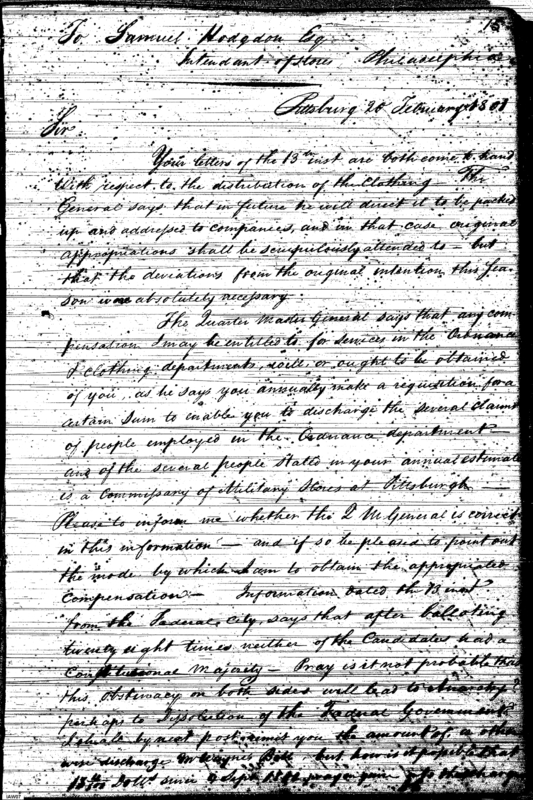 15
To Samuel Hodgdon Esq
Intendant of stores Philadelphia
Pittsburg 20 February 1801
Sir
Your letters of the 13th inst are both come to hand
With respect to the distribution of the Clothing The
General says that in future he will direct it to be packed
up and addressed to companies, and in that case original
appropriations shall be scrupulously attended to - but
that the deviations from the original intention this sea-
son were absolutely necessary.
The Quarter Master General says that any com-
pensation I may be entitled to for services in the Ordnance
& clothing departments, will, or ought to be obtained
of you, as he says you annually make a requisition for a
certain sum to enable you to discharge the several claims
of people employed in the Ordnance department -
and of the several people stated in your annual estimate
is a Commissary of Military Stores at Pittsburgh
Please to inform me whether the Q M General is correct
in this information - and if so be pleased to point out
the mode by which I am to obtain the appropriated
Compensation - Information dated the 13 inst
from the Federal City, says that after balloting
twenty eight times neither of the Candidates had a
Constitutional Majority - Pray is it not probable that
this Obstinacy on both sides will lead to Anarchy?
perhaps to Dissolution of the Federal Government
I shall by next post remit you the amount of, or other
wise discharge Mr Wayne's Bill - but how is it possible that
13 Doll.s since Sept.